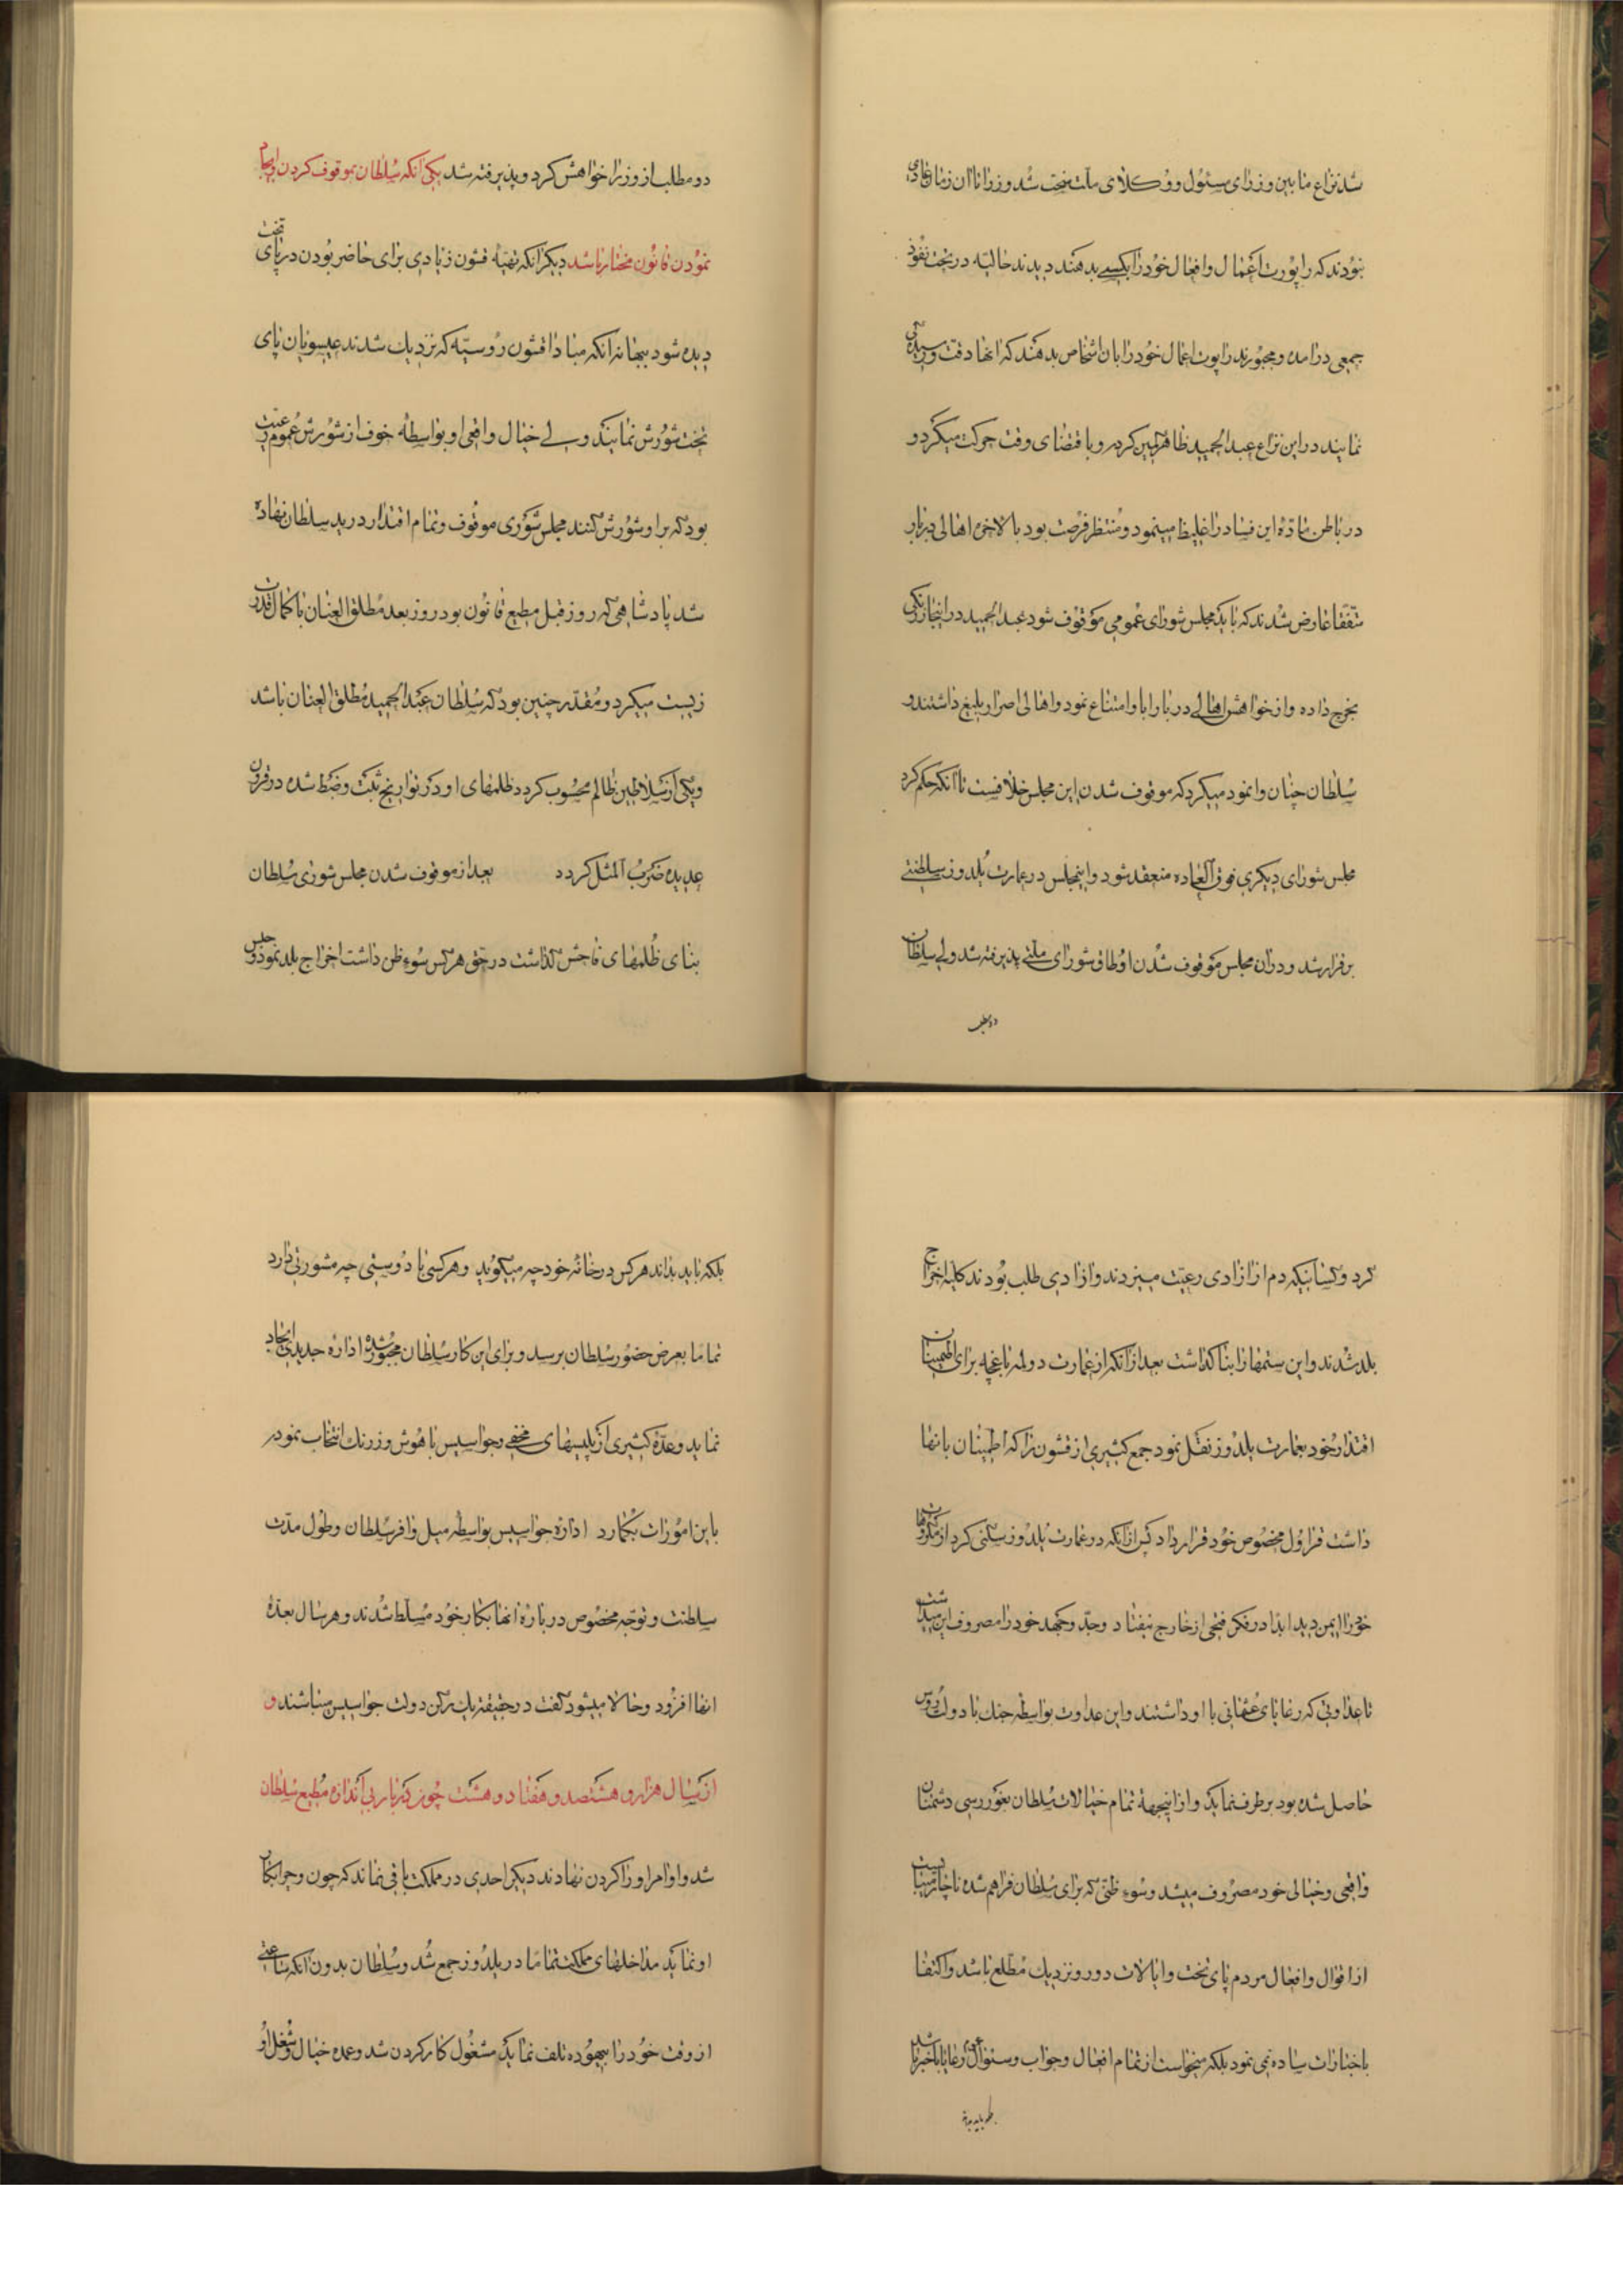 شد نزاع مابین وزرای مسئول و وکلای ملت سخت شد وزرا تا ان زمان عادی
نبودند که راپورت اعمال و افعال خود را بکسی بدهند دیدند حالیه در تحت نفوذ
جمعی درامده و مجبورند راپورت اعمال خود را بان اشخاص بدهند که انها دقت و رسیدگی
نمایند در این نزاع عبدالحمید ظاهر تمکین کرده و با قتضای وقت حرکت میکرد و
در باطن ماده این فساد را غلیظ مینمود و منتظر فرصت بود بالاخره اهالی دربار
متفقا عارض شدند که باید مجلس شورای عمومی موقوف شود عبدالحمید در اینجا زرنگی
بخرج داده و از خواهش اهالی دربار ابا و امتناع نمود و اهالی اصرار بلیغ داشتند و
سلطان چنان وانمود میکرد که موقوف شدن این مجلس خلافست تا انکه حکم کرد
مجلس شورای دیگری فوق العاده منعقد شود و اینمجلس در عمارت یلدوز سلطنتی
برقرار شد و در ان مجلس موقوف شدن اوطاق شورای ملتی پذیرفته شد ولی سلطان
دو مطلب
دو مطلب از وزرا خواهش کرد و پذیرفته شد یکی انکه سلطان بموقوف کردن و ایجاد
نمودن قانون مختار باشد دیگر انکه تهیه قشون زیادی برای حاضر بودن در پای تخت
دیده شود ببهانه انکه مبادا قشون روسیه که نزدیک شدند عیسویان پای
تخت شورش نمایند ولی خیال واقعی او بواسطه خوف از شورش عموم رعیت
بود که بر او شورش کنند مجلس شوری موقوف و تمام اقتدار در ید سلطان نهاده
شد پادشاهی که روز قبل مطیع قانون بود روز بعد مطلق العنان با کمال قدرت
زیست میکرد و مقدر چنین بود که سلطان عبدالحمید مطلق العنان باشد
ویکی از سلاطین ظالم محسوب گردد ظلمهای او در تواریخ ثبت و ضبط شده در قرون
عدیده ضرب المثل گردد بعد از موقوف شدن مجلس شوری سلطان
بنای ظلمهای فاحش گذاشت در حق هر کس سوء ظن داشت اخراج بلد نمود و حبس
کرد و کسانیکه دم از ازادی رعیت میزدند و ازادی طلب بودند کلیه اخراج
بلد شدند و این ستمها را بنا گذاشت بعد از انکه از عمارت دولمه باغچه برای اطمینان
اقتدار خود بعمارت یلدوز نقل نمود جمع کثیری از قشون را که اطمینان بانها
داشت قراول مخصوص خود قرار داد پس از انکه در عمارت یلدوز سکنی کرد از مکروهات
خود را ایمن دید ابدا در فکر فتحی از خارج نیفتاد وجد و جهد خود را مصروف این میداشت
تا عداوتی که رعایای عثمانی با او داشتند و این عداوت بواسطه جنگ با دولت روس
حاصل شده بود بر طرف نماید و از اینجهة تمام خیالات سلطان بغور رسی دشمنان
واقعی و خیالی خود مصروف میشد و سوء ظنی که برای سلطان فراهم شده ناچار میبایست
از اقوال و افعال مردم پای تخت و ایالات دور و نزدیک مطلع باشد و اکتفا
باخبارات ساده نمی نمود بلکه میخواست از تمام افعال و جواب و سئوال رعایا باخبر باشد
بلکه باید بداند
بلکه باید بداند هر کس در خانه خود چه میگوید و هر کسی با دوستی چه مشورتی دارد
تماما بعرض حضور سلطان برسد و برای این کار سلطان مجبور شده اداره جدیدی ایجاد
نماید و عده کثیری از پلیسهای مخفی و جواسیس با هوش و زرنگ انتخاب نموده
باین امورات بگمارد اداره جواسیس بواسطه میل وافر سلطان و طول مدت
سلطنت و توجه مخصوص درباره انها بکار خود مسلط شدند و هر سال بعده
انها افزود و حالا میشود گفت در حقیقة یک رکن دولت جواسیس میباشند و
از سال هزار و هشتصد و هفتاد و هشت چون دربار بی اندازه مطیع سلطان
شد و اوامر او را گردن نهادند دیگر احدی در مملکت باقی نماند که چون و چرا بکار
او نماید مداخلهای مملکت تماما در یلدوز جمع شد و سلطان بدون انکه ساعتی
از وقت خود را بیهوده تلف نماید مشغول کار کردن شد و عمده خیال و شغل او